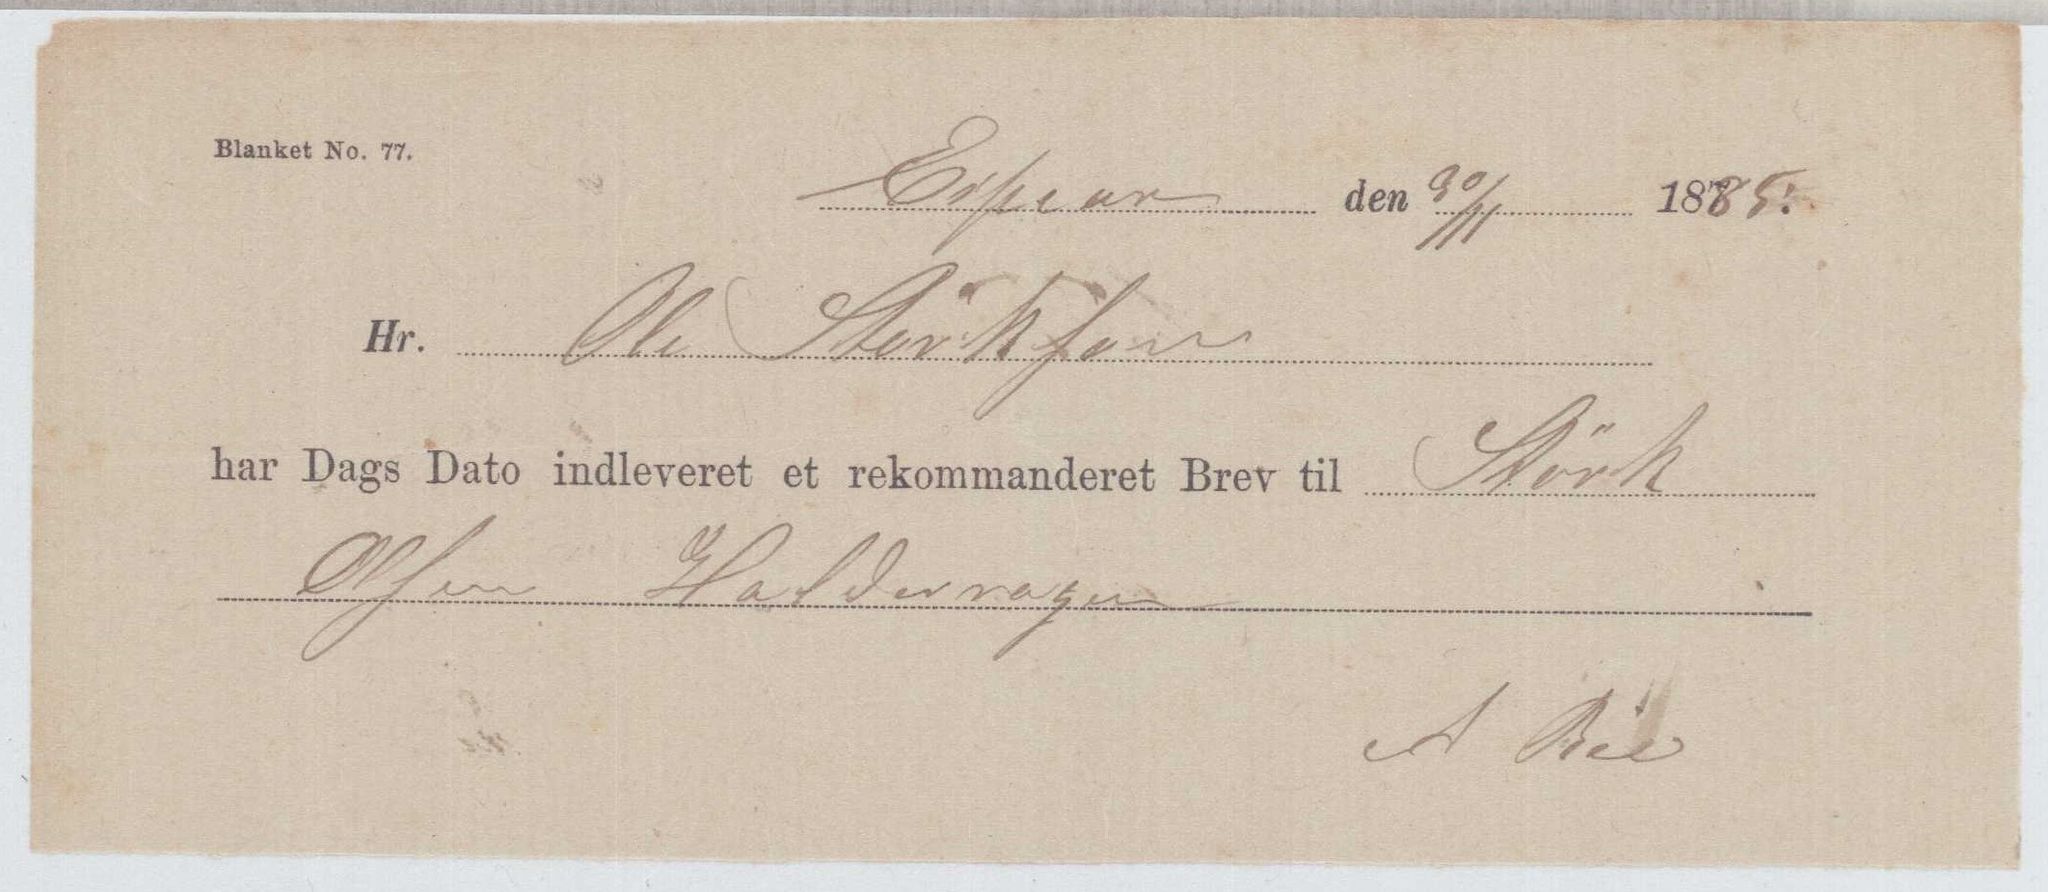 Blanket No. 77.
Espevær den 30/11 1885.
Hr. Ole Störksen
har Dags Dato indleveret et rekommanderet Brev til Störk
Olsen Haldorragen
A Bøe